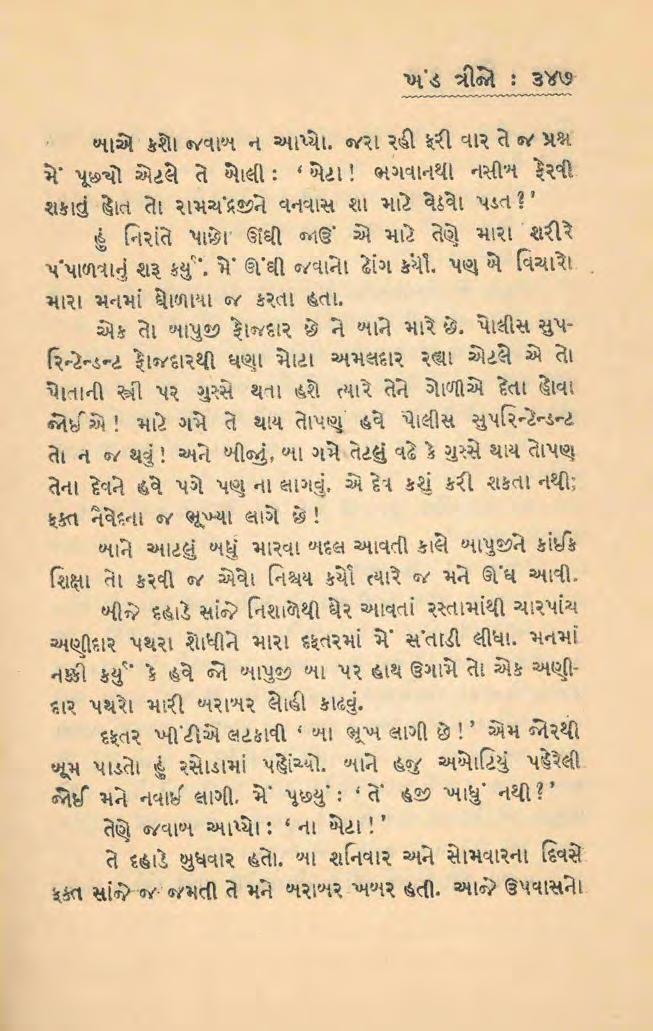 ખંડ ત્રીજો : ૩૪૭
બાએ કશો જવાબ ન આપ્યો. જરા રહી ફરી વાર તે જ પ્રશ્ન
મેં પૂછયો એટલે તે બોલી : ‘ બેટા ! ભગવાનથી નસીબ ફેરવી
શકાતું હોત તો રામચંદ્રજીને વનવાસ શા માટે વેઠવો પડત ? ’
હું નિરાંતે પાછો ઊંઘી જાઉં એ માટે તેણે મારા શરીરે
પંપાળવાનું શરૂ કર્યું. મેં ઊંઘી જવાનો ઢોંગ કર્યો. પણ બે વિચારો
મારા મનમાં ઘોળાયા જ કરતા હતા.
એક તો બાપુજી ફોજદાર છે ને બાને મારે છે. પોલીસ સુપ-
રિન્ટેન્ડન્ટ ફોજદારથી ઘણા મોટા અમલદાર રહ્યા એટલે એ તો
પોતાની સ્ત્રી પર ગુસ્સે થતા હશે ત્યારે તેને ગોળીએ દેતા હોવા
જોઈએ ! માટે ગમે તે થાય તોપણ હવે પોલીસ સુપરિન્ટેન્ડન્ટ
તો ન જ થવું ! અને બીજું, બા ગમે તેટલું વઢે કે ગુસ્સે થાય તોપણ
તેના દેવને હવે પગે પણ ના લાગવું. એ દેવ કશું કરી શકતા નથી;
ફક્ત નૈવેદના જ ભૂખ્યા લાગે છે !
બાને આટલું બધું મારવા બદલ આવતી કાલે બાપુજીને કાંઈક
શિક્ષા તો કરવી જ એવો નિશ્ચય કર્યો ત્યારે જ મને ઊંઘ આવી.
બીજે દહાડે સાંજે નિશાળેથી ઘેર આવતાં રસ્તામાંથી ચારપાંચ
અણીદાર પથરા શોધીને મારા દફતરમાં મેં સંતાડી લીધા. મનમાં
નક્કી કર્યું કે હવે જો બાપુજી બા પર હાથ ઉગામે તો એક અણી-
દાર પથરો મારી બરાબર લોહી કાઢવું.
દફતર ખીંટીએ લટકાવી ‘ બા ભૂખ લાગી છે ! ’ એમ જોરથી
બૂમ પાડતો હું રસોડામાં પહોંચ્યો. બાને હજુ અબોટિયું પહેરેલી
જોઈ મને નવાઈ લાગી. મેં પૂછ્યું : ‘ તેં હજી ખાધું નથી ? ’
તેણે જવાબ આપ્યો : ‘ ના બેટા ! ’
તે દહાડે બુધવાર હતો. બા શનિવાર અને સોમવારના દિવસે
ફક્ત સાંજે જ જમતી તે મને બરાબર ખબર હતી. આજે ઉપવાસનો